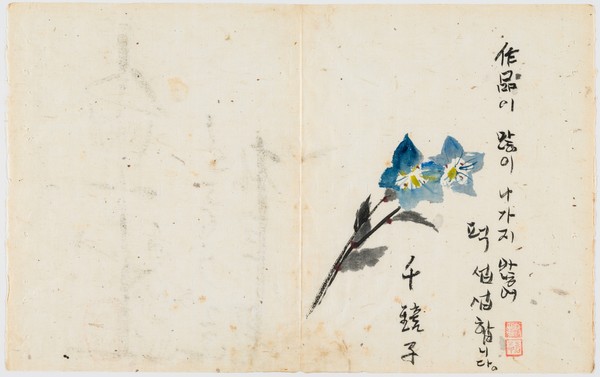 作品이 많이 나가지 않어
퍽 섭섭합니다。
千鏡子